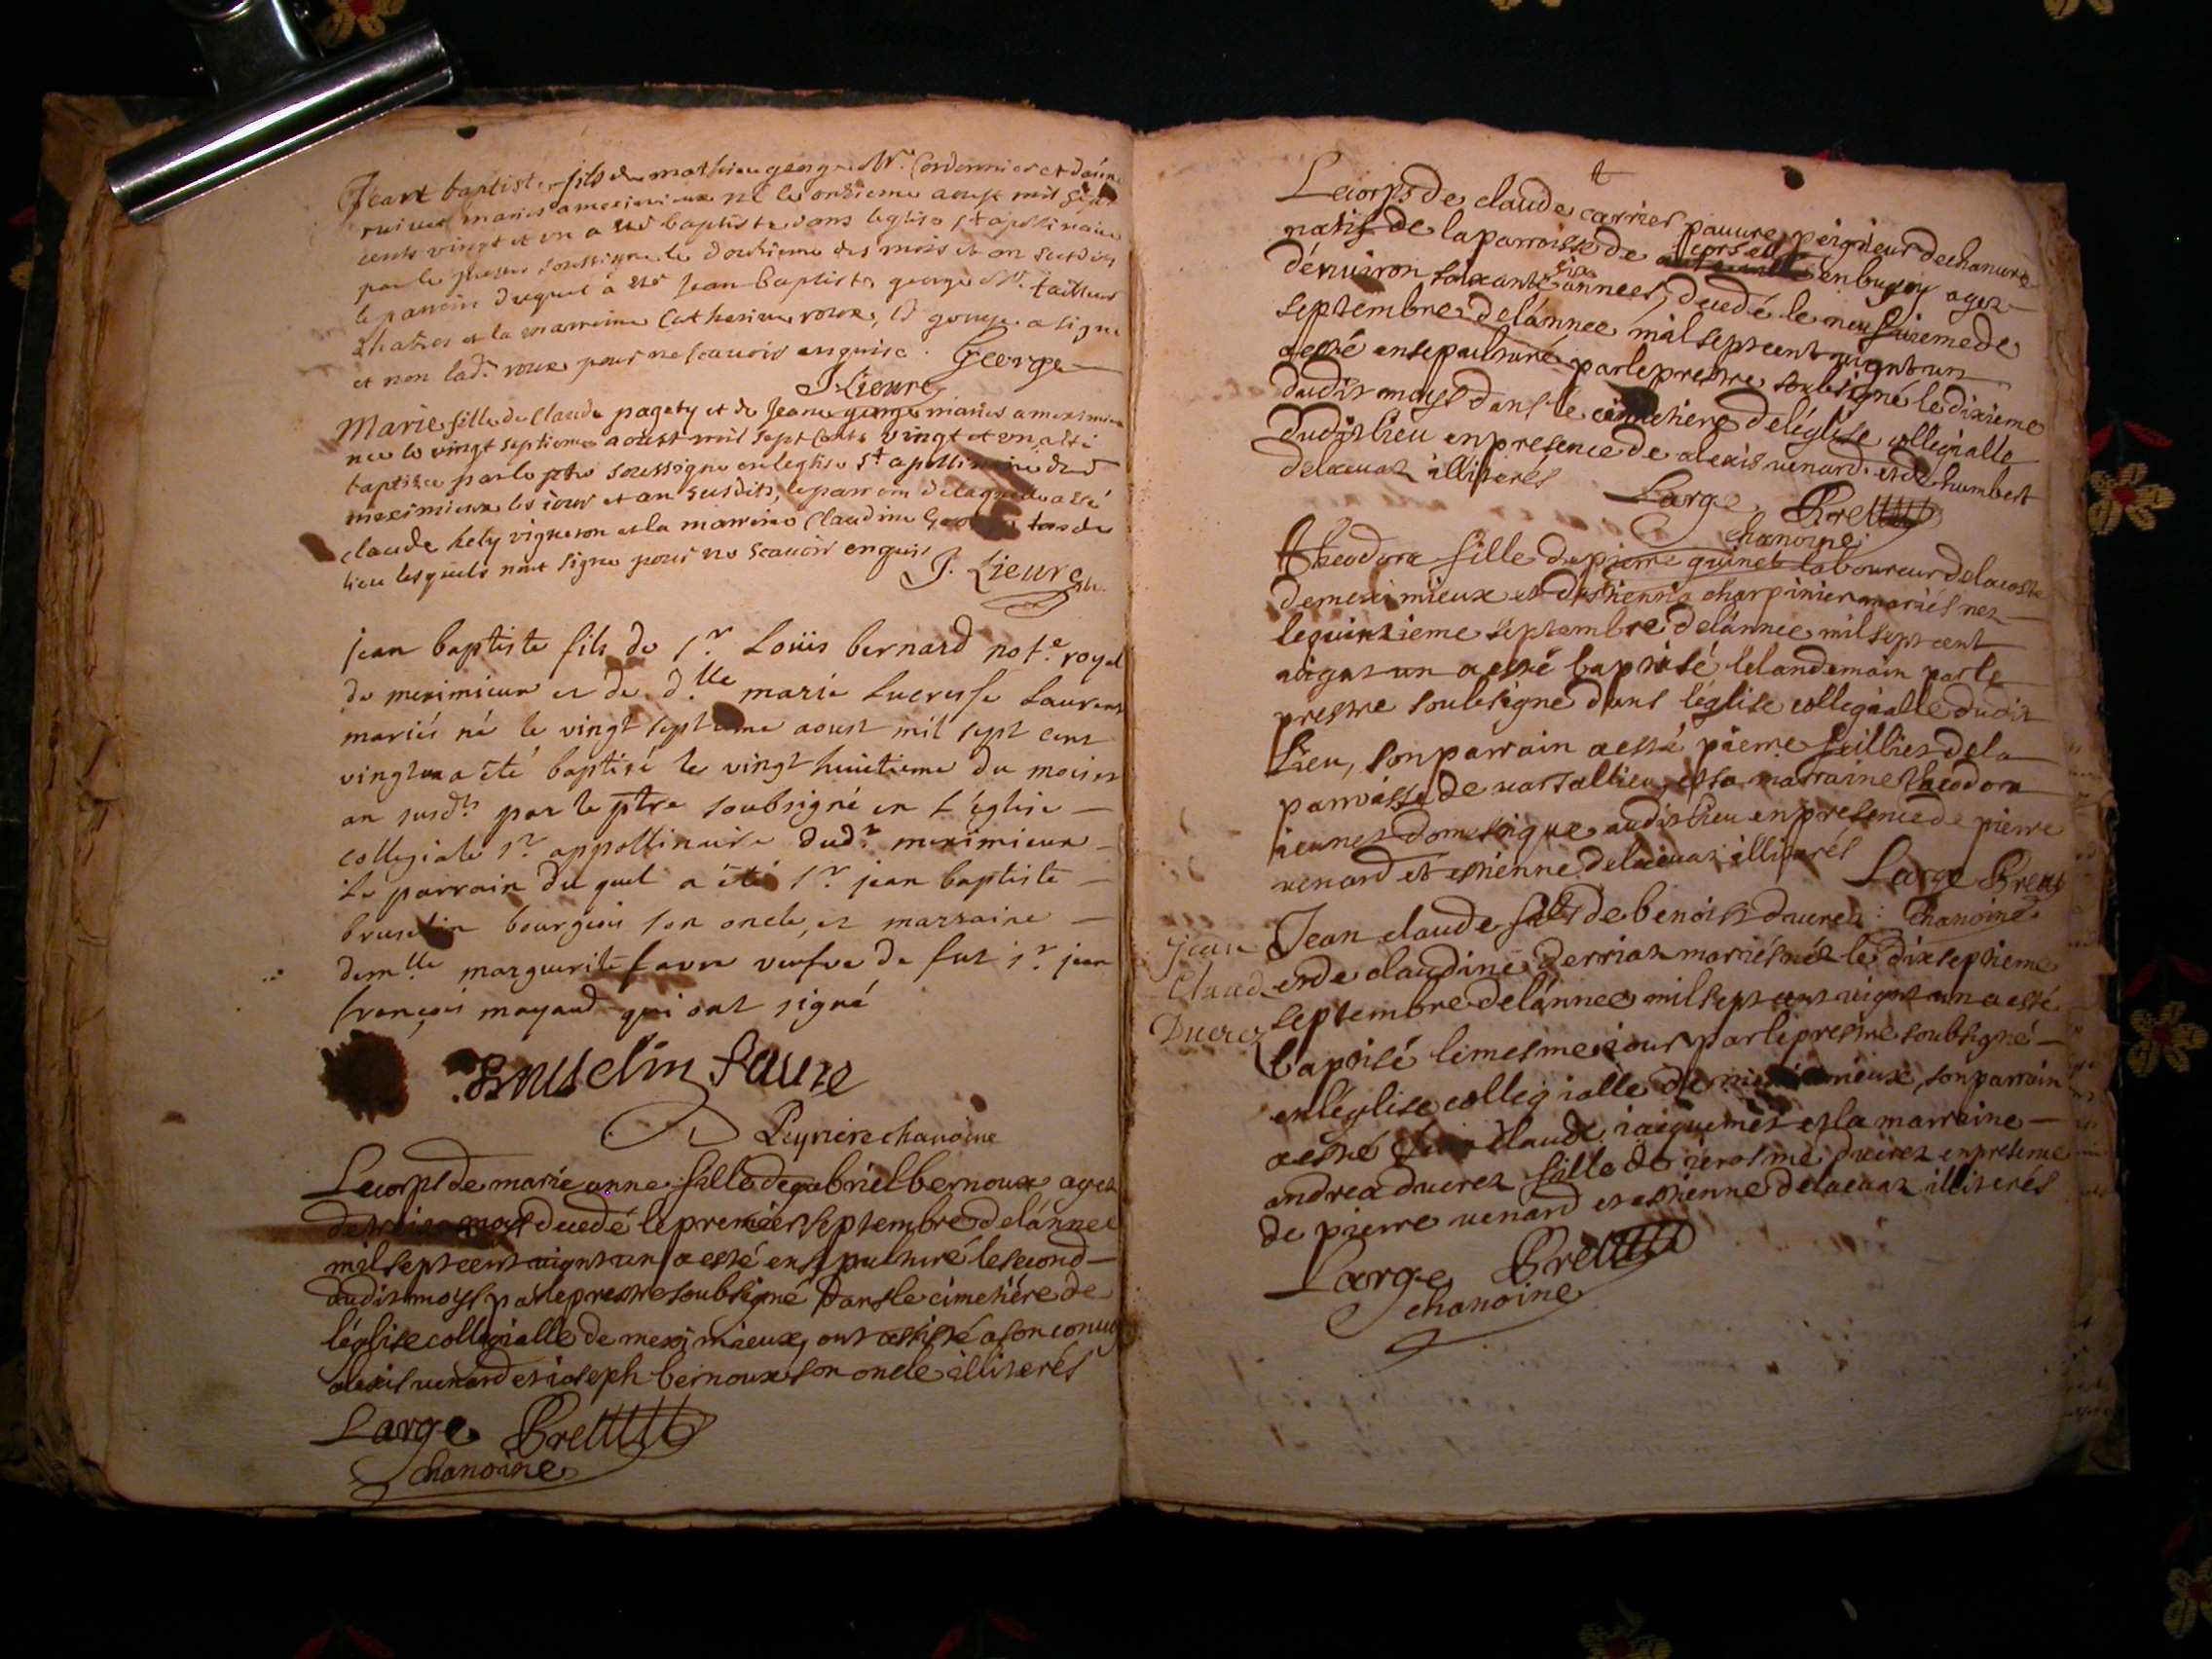 Jean baptiste fils de mathieu george Mr. Cordonnier et
mariés a meximieux né le onzieme aoust mil sept
cents vingt et un a esté baptisé dans leglise st apollinaire
par le soussigné le douzieme des mois et an susdits
le parrein duquel a esté Jean baptiste george Mr. tailleur
et la marreine Catherine roux, george a signé
et non lade. roux pour ne scavoir enquise. George
J. Lieure
Marie fille de Claude pagety et de Jeane george mariés a meximieux
nee le vingt septieme aoust mil sept cents vingt et un a esté
baptisee par le ptre soussigné en leglise st apollinaire
meximieux les iour et an susdits, le parrein de laquelle a esté
claude hely vigneron et la marreine Claudine
lieu lesquels nont signé pour ne scavoir enquis
J. Lieure ptre.
jean baptiste fils de sr. Loüis bernard note. royal
de meximieux et de dlle marie Lucresse Laurent
mariés né le vingt septieme aoust mil sept cent
vingt un a été baptisé le vingt huictieme du mois et
an susdts par le ptre soubsigné en l'église —
collegiale st. appollinaire dudt. meximieux —
le parrain du quel a été sr. jean baptiste —
bruselin bourgeois son oncle, et marraine —
demlle marguerite favre veufve de feu sr. jean
françois mayand qui ont signé
Bruselin faure
Peyriere chanoine
Le corps de marie anne fille de gabriel bernoux agez
de mois decedé le premier septembre de lánnee
mil sept cent vignt un a esté ensepulturé le second —
dudit moys par le prestre soubsigné dans le cimetière de
léglise collegialle de meximieux, ont assisté a son convoy
alexis venard et ioseph bernoux son oncle illiterés
Large Bret
chanoine
Le corps de claude carrier pauvre peigneur de chanvre
natif de la parroisse de en bugey agez —
dénuiron soixante six annees, decedé le neufuieme de
septembre de lánnee mil sept cent vignt un
a esté ensepulturé par le prestre soubsigné le dixieme
dudit moys dans le cimetière de léglise collegialle
dudit lieu en presence de alexis venard et de humbert
delacuaz illiterés Large Bret
chanoine
theodora fille de pierre guinet laboureur de la coste
de meximieux et destiennie charpinier mariés nez —
le quinzieme septembre de lánnee mil sept cent
vignt un a esté baptisé le landemain par le
prestre soubsigné dans léglise collegialle dudit
Lieu, son parrain a esté pierre de la
parroisse de et sa marraine theodora
domestique audit lieu en presence de pierre
venard et estienne delacuaz illiterés Large Bret
chanoine
jean
Claude
Ducrez
Jean claude fils de benoist ducrez
et de claudine derriaz mariés néz le dixseptieme
septembre de lánnee mil sept cent vignt un a esté
baptisé le mesme iour par le prestre soubsigné —
en léglise collegialle de meximieux, son parrain
a esté claude iaiquemet et la marreine —
andrea ducrez fille de ierosme ducrez en presence
de pierre venard et estienne delacuaz illiterés
Large Bret
chanoine